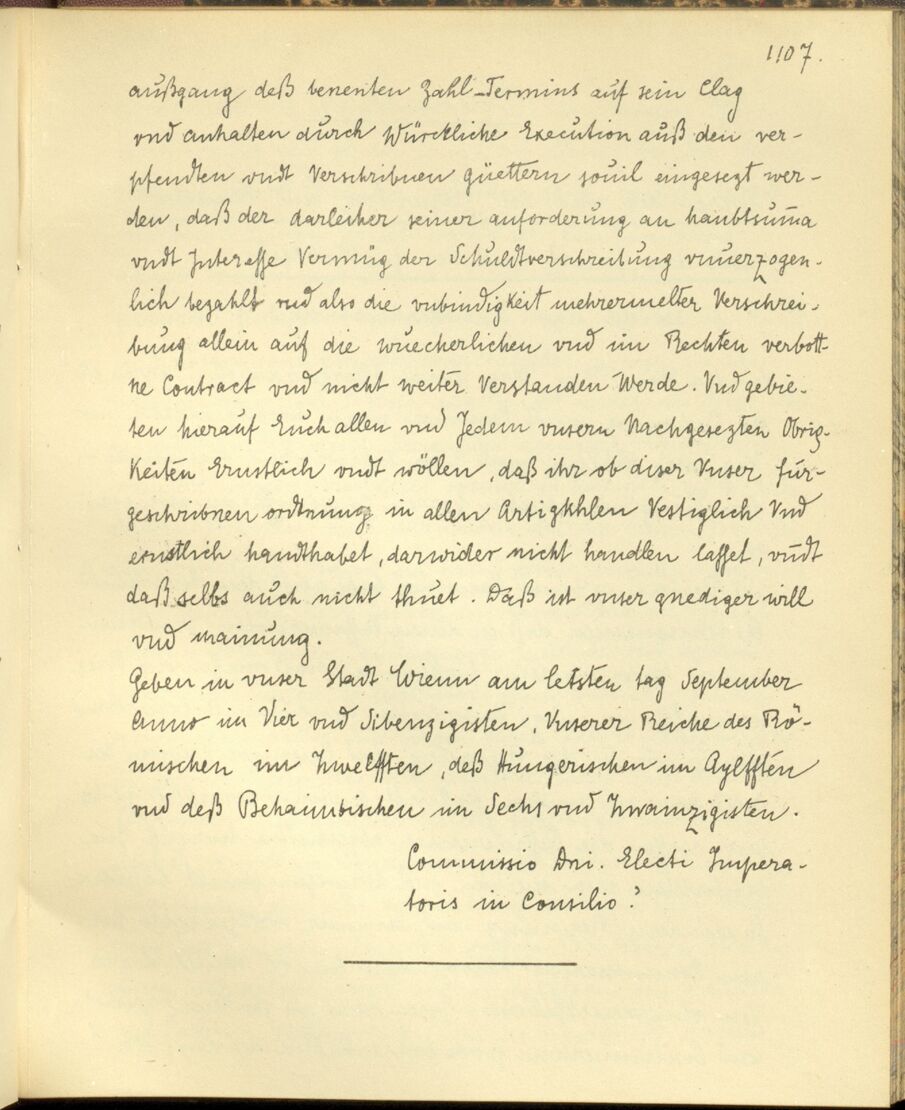 1107.
außgang deß benenten Zahl-Termins auf sein Clag
vnd anhalten durch Würckliche Execution auß den ver-
pfendten vndt Verschribnen güettern souil eingesezt wer-
den, daß der darleiher seiner anforderung an haubtsum̅a
vndt Interesse Vermüg der Schuldtverschreibung vnuerzogen-
lich bezahlt vnd also die vnbindigkeit mehrermelter Verschrei-
bung allein auf die wuecherlichen vnd im Rechten verbott-
ne Contract vnd nicht weiter Verstanden Werde. Vnd gebie-
ten hierauf Euch allen vnd Jedem vnsern Nachgesezten Obrig-
Keiten Ernstlich vndt wöllen, daß ihr ob diser Vnser für-
geschribnen ordtnung in allen Artigkhlen Vestiglich Vnd
ernstlich handthabet, darwider nicht handlen lasset, vndt
daß selbs auch nicht thuet. Daß ist vnser gnediger will
vnd mainung.
Geben in vnser Stadt Wienn am letsten tag September
Anno im Vier vnd Sibenzigisten, Vnserer Reiche des Rö-
mischen im Zwelfften, deß Hungerischen im Aylfften
vnd deß Behaimbischen im Sechs vnd Zwainzigisten.
Commissio Dni. Electi Impera-
toris in Consilio?